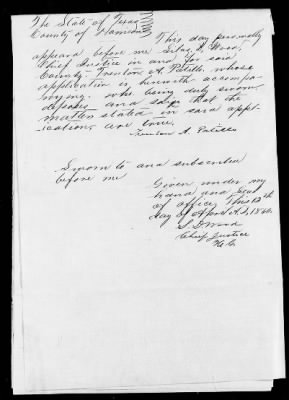 The State of Texas
County of Harrison
This day personally
appeared before me Silas D. Wood,
Chief Justice in and for said
County Trenton A. Patillo, whose
application is herewith accompa-
nying. who being duly sworn,
deposes and says that the
matters stated in said appl-
ication, are true.
Trenton A. Patillo
Sworn to and subscribed
before me
Given under my
hand and seal
of office, this 12th
day of April A.D. 186
S. D. Wood
Chief Justice
H. C.